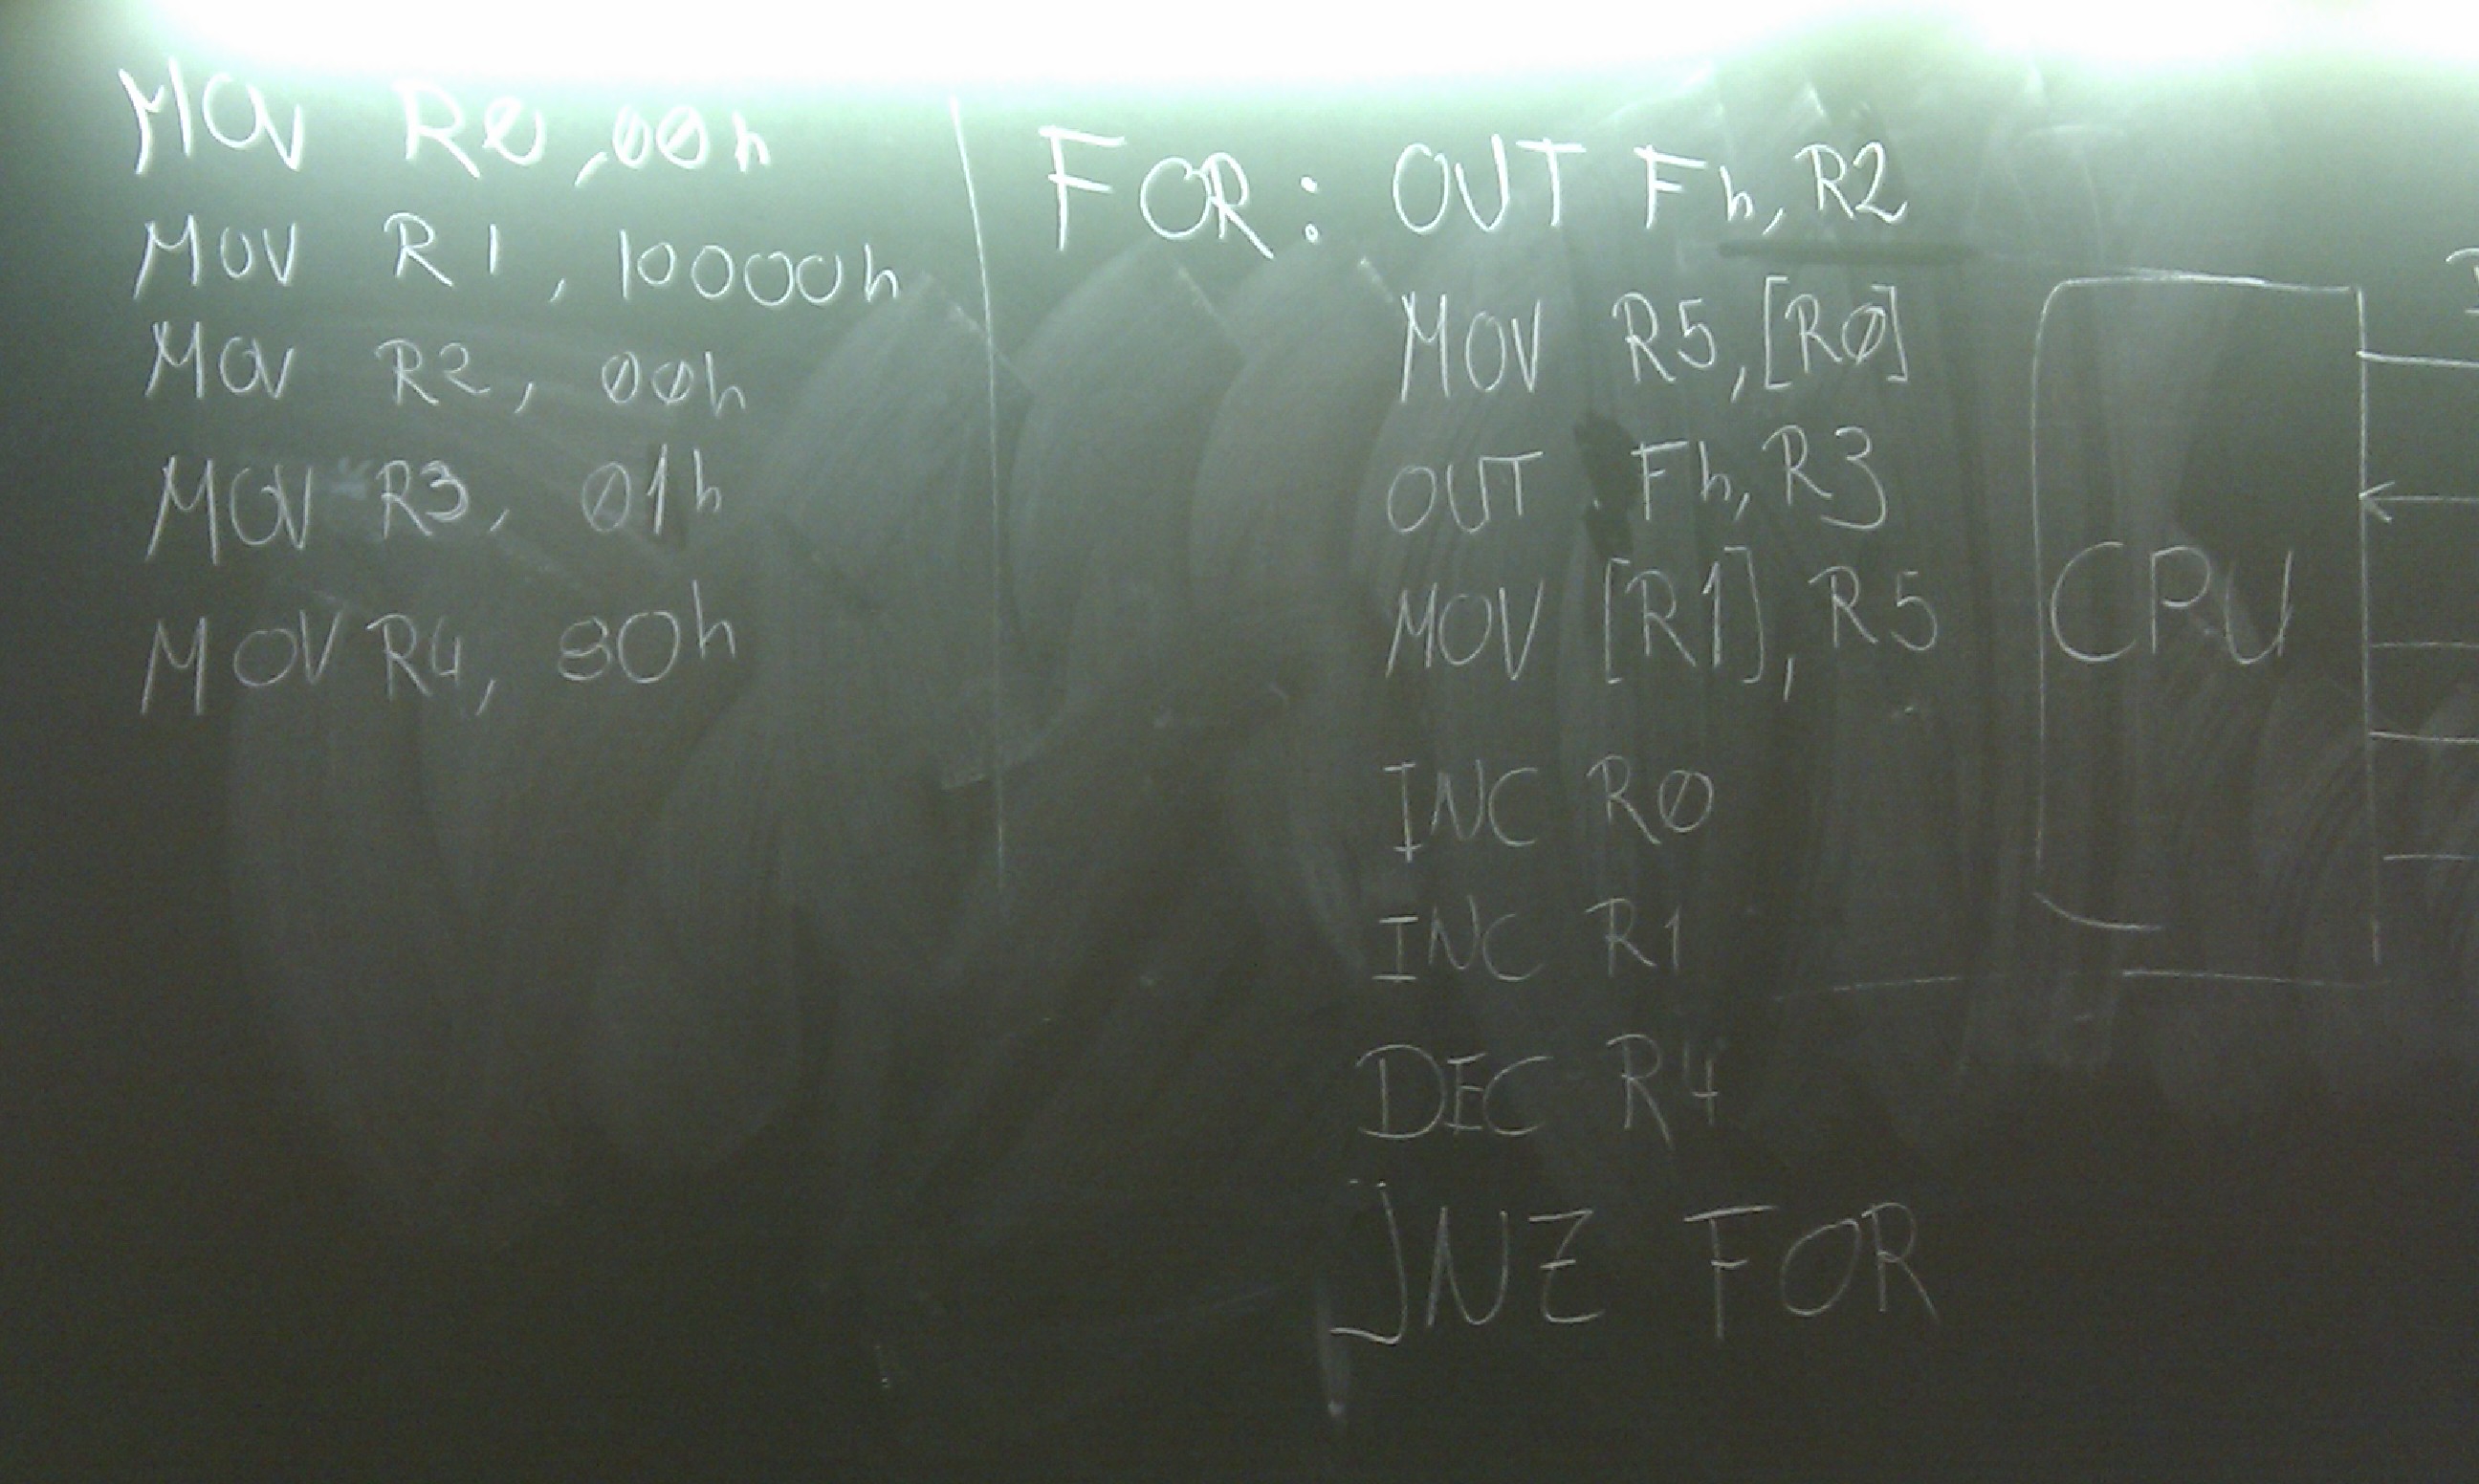 MOV R0, 00h
MOV R1, 10000h
MOV R2, 00h
MOV R3, 01h
MOV R4, 80h
FOR: OUT Fh, R2
MOV R5, [R0]
OUT Fh, R3
MOV [R1], R5
INC R0
INC R1
DEC R4
JNZ FOR
CPU